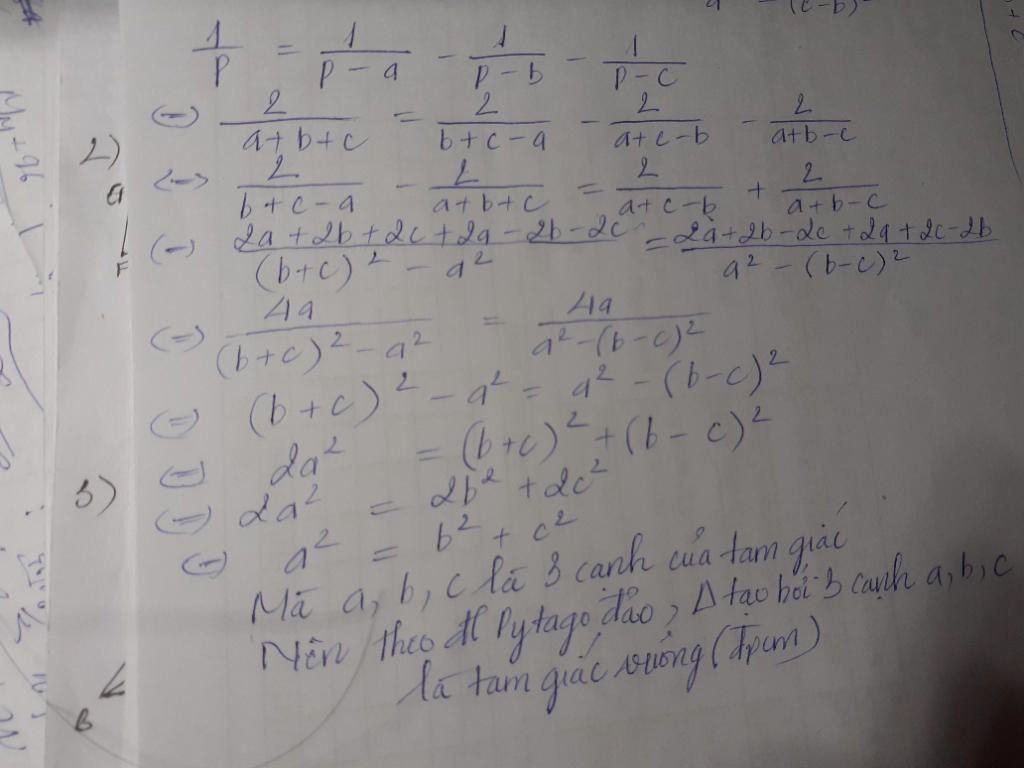 1/p = 1/(p-a) - 1/(p-b) - 1/(p-c)
(=) 2/(a+b+c) = 2/(b+c-a) - 2/(a+c-b) - 2/(a+b-c)
2)
a
<=> 2/(b+c-a) - 2/(a+b+c) = 2/(a+c-b) + 2/(a+b-c)
F
(=) (2a+2b+2c+2a-2b-2c)/((b+c)² - a²) = (2a+2b-2c+2a+2c-2b)/(a² - (b-c)²)
(=) 4a/((b+c)² - a²) = 4a/(a² - (b-c)²)
(=) (b+c)² - a² = a² - (b-c)²
(=) 2a² = (b+c)² + (b-c)²
3)
(=) 2a² = 2b² + 2c²
(=) a² = b² + c²
Mà a, b, c là 3 cạnh của tam giác
Nên theo đl Pytago đảo, Δ tạo bởi 3 cạnh a, b, c
là tam giác vuông (đpcm)
B